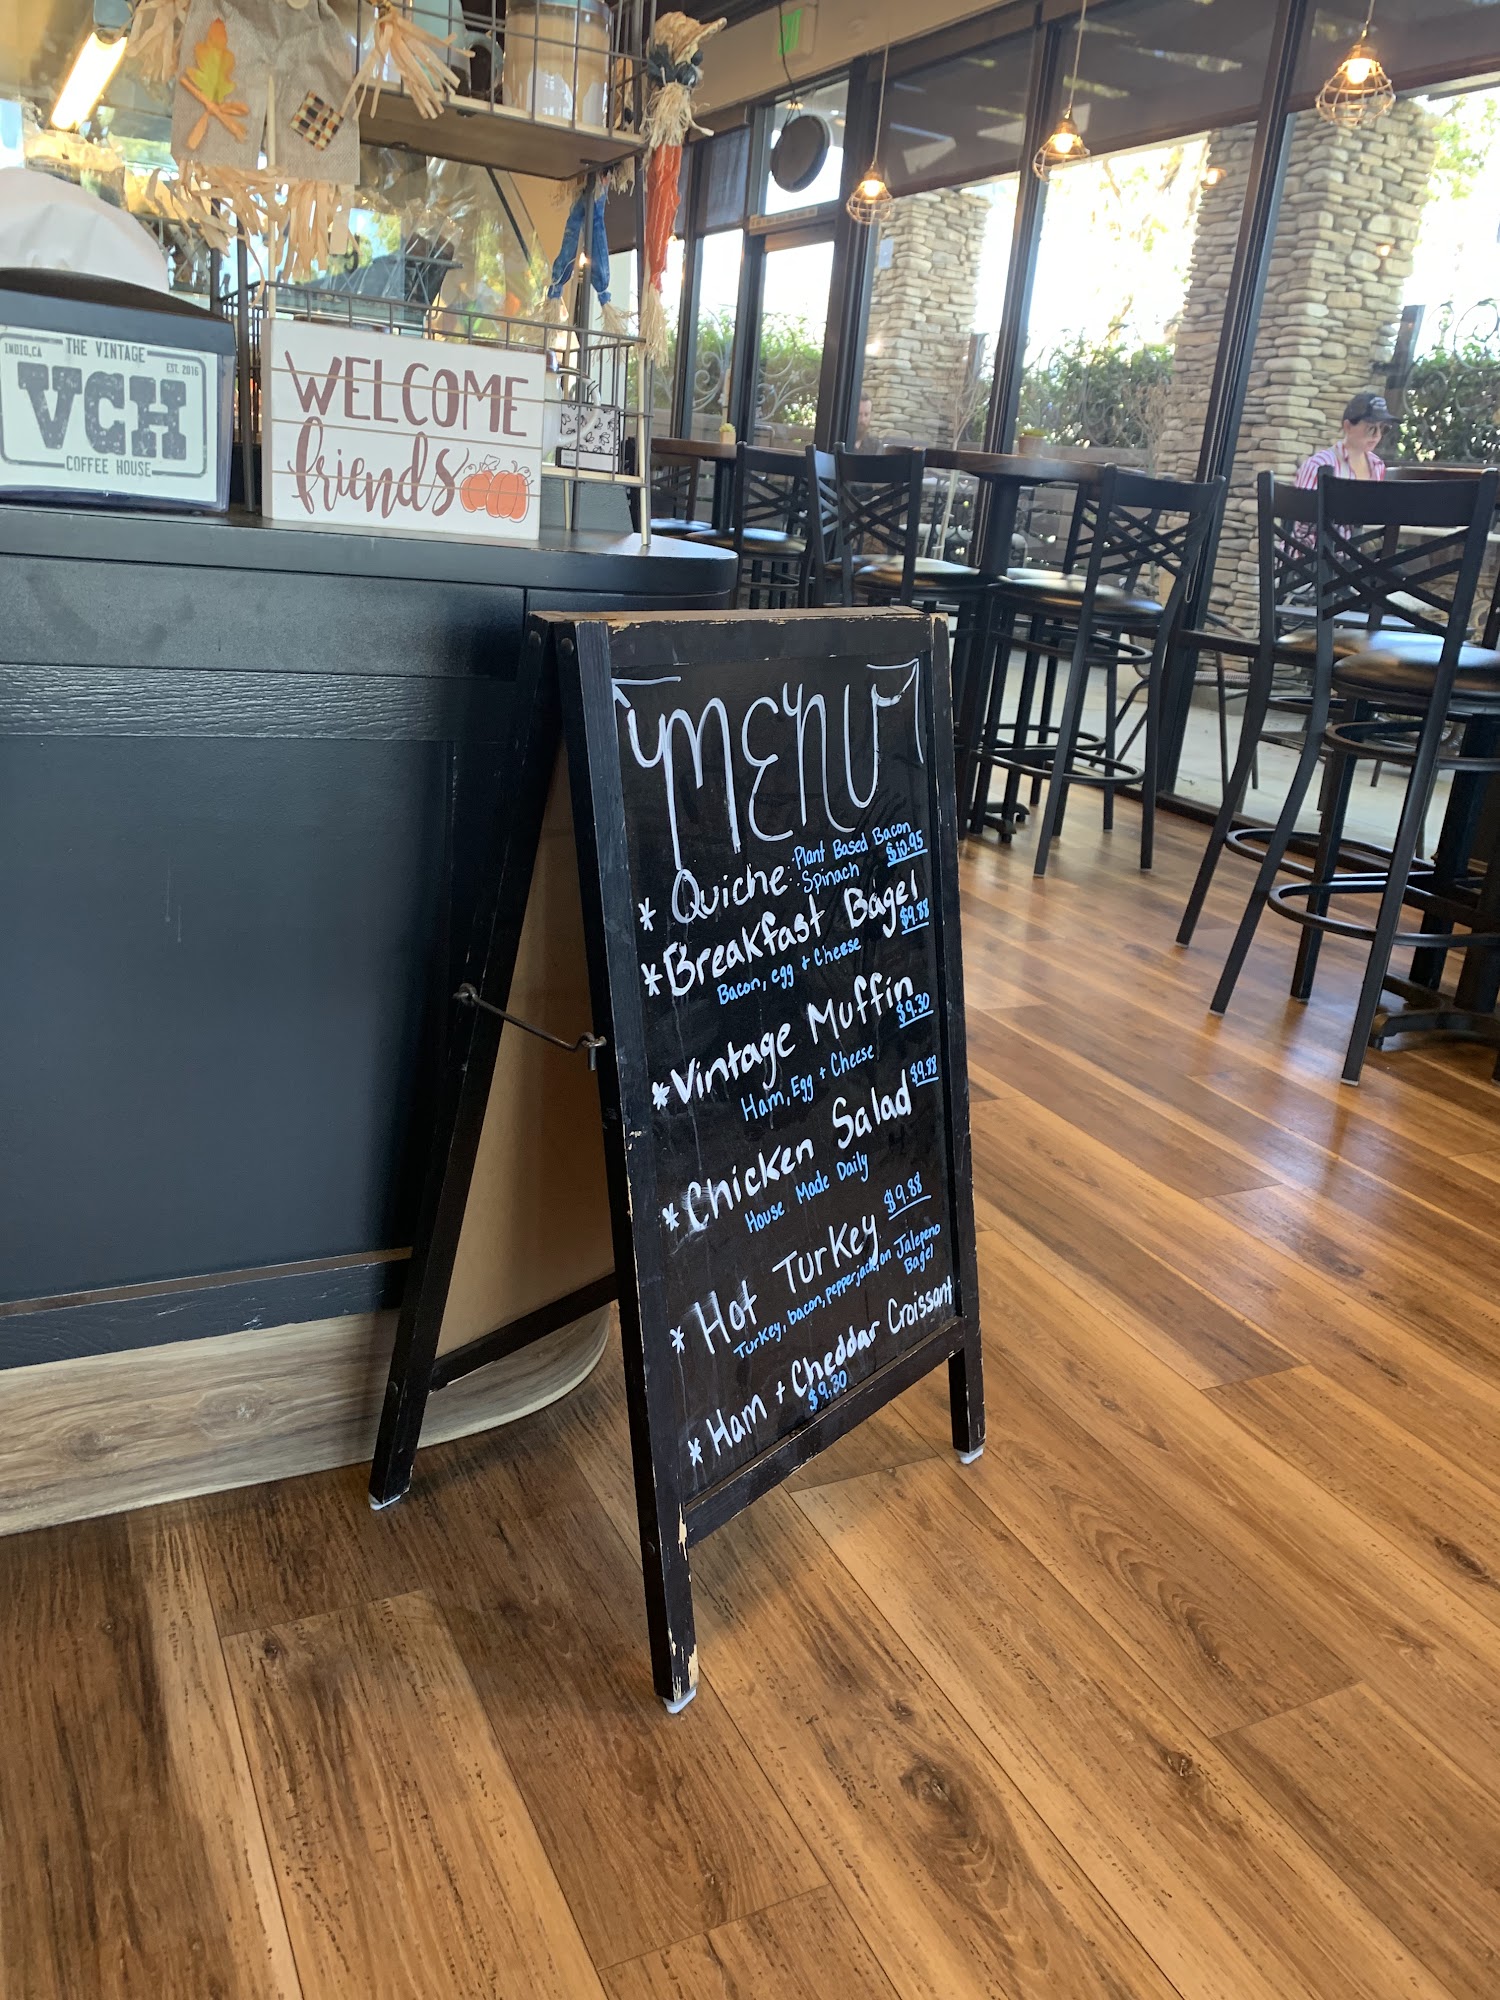 INDIO,CA
THE VINTAGE
EST. 2016
VCH
COFFEE HOUSE
WELCOME
friends
MENU
* Quiche : Plant Based Bacon
: Spinach $10.95
* Breakfast Bagel
Bacon, egg + Cheese $9.88
* Vintage Muffin
Ham, Egg + Cheese $9.30
* Chicken Salad $9.88
House Made Daily
* Hot Turkey $9.88
Turkey, bacon, pepperjack, on Jalepeno
Bagel
* Ham + Cheddar Croissant
$9.30